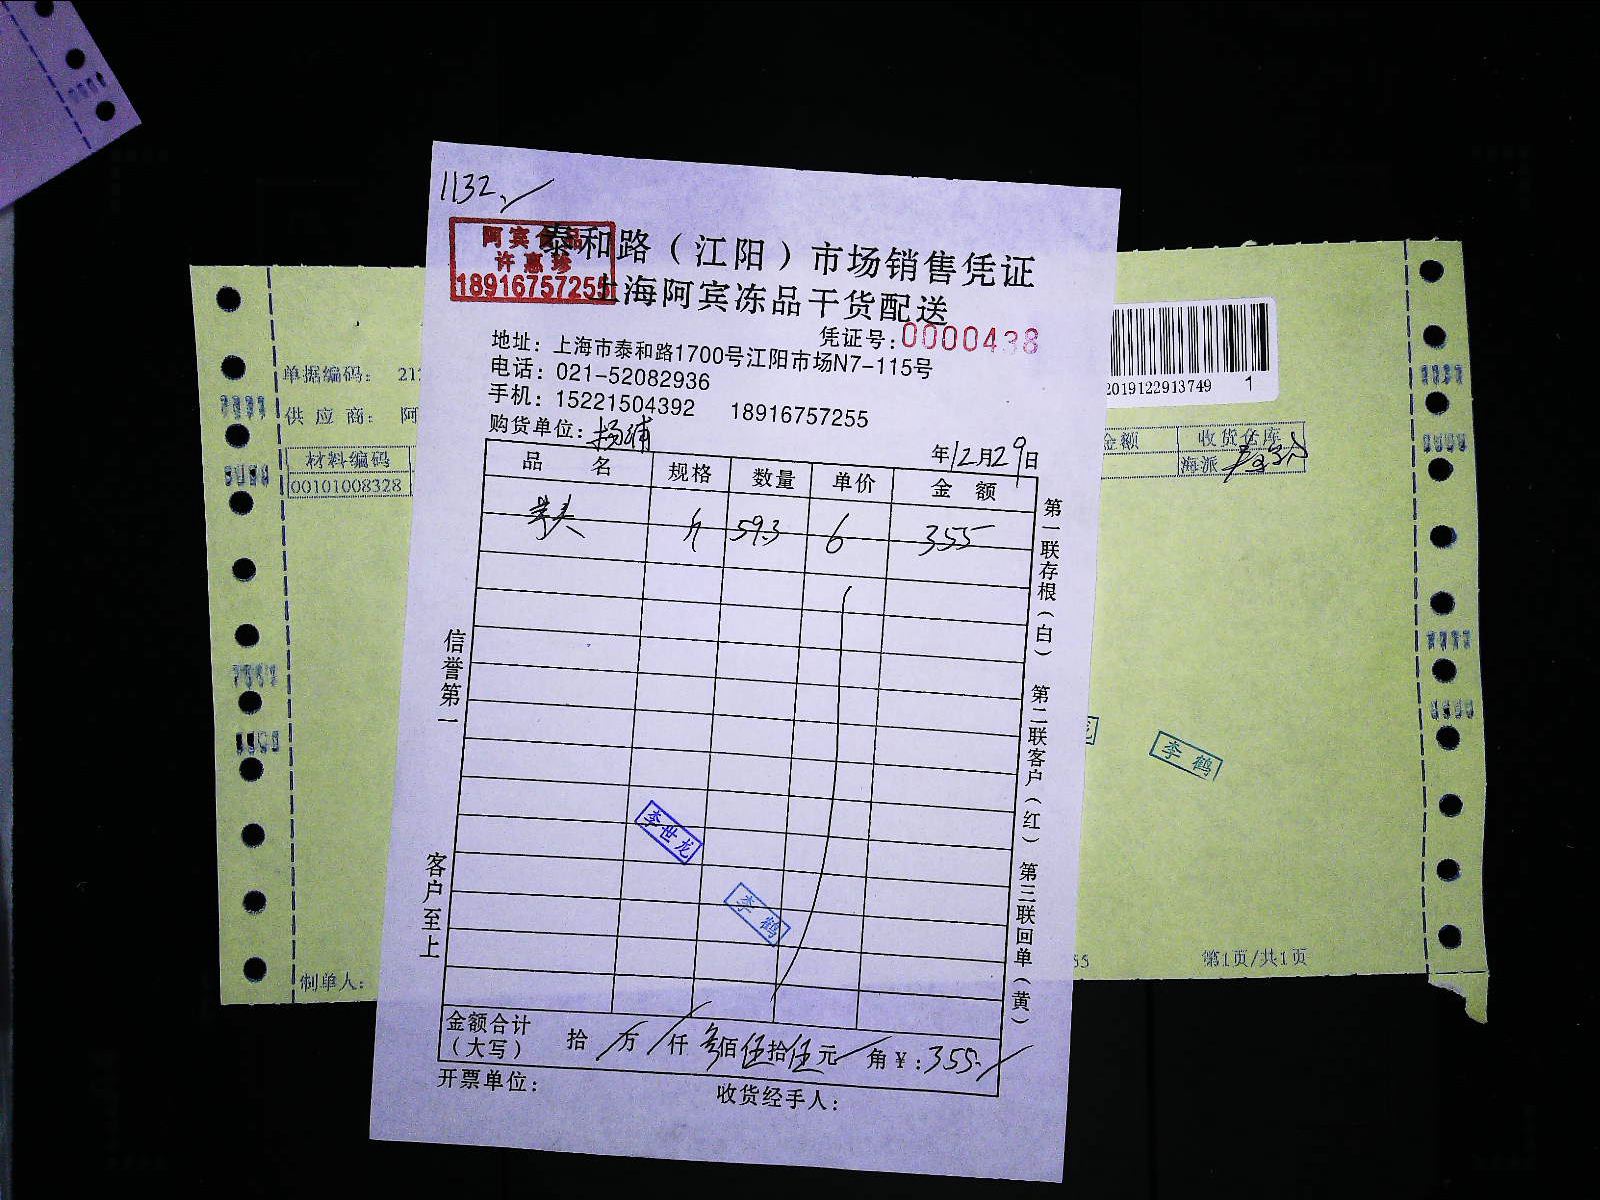 1132
阿宾食品
许惠珍
18916757255
泰和路（江阳）市场销售凭证
上海阿宾冻品干货配送
凭证号:0000438
地址：上海市泰和路1700号江阳市场N7-115号
电话：021-52082936
手机：15221504392 18916757255
购货单位:杨浦
年12月29日
品名 规格 数量 单价 金额
59.3 6 355
第一联存根（白）
第二联客户（红）
第三联回单（黄）
信誉第一
客户至上
李世龙
李鹤
金额合计（大写） 拾 万 仟 叁佰伍拾伍元 角 ¥:355
开票单位:
收货经手人:
单据编码: 212
供应商: 阿
材料编码
00101008328
制单人:
2019122913749 1
金额 收货仓库
海派
龙
李鹤
55
第1页/共1页